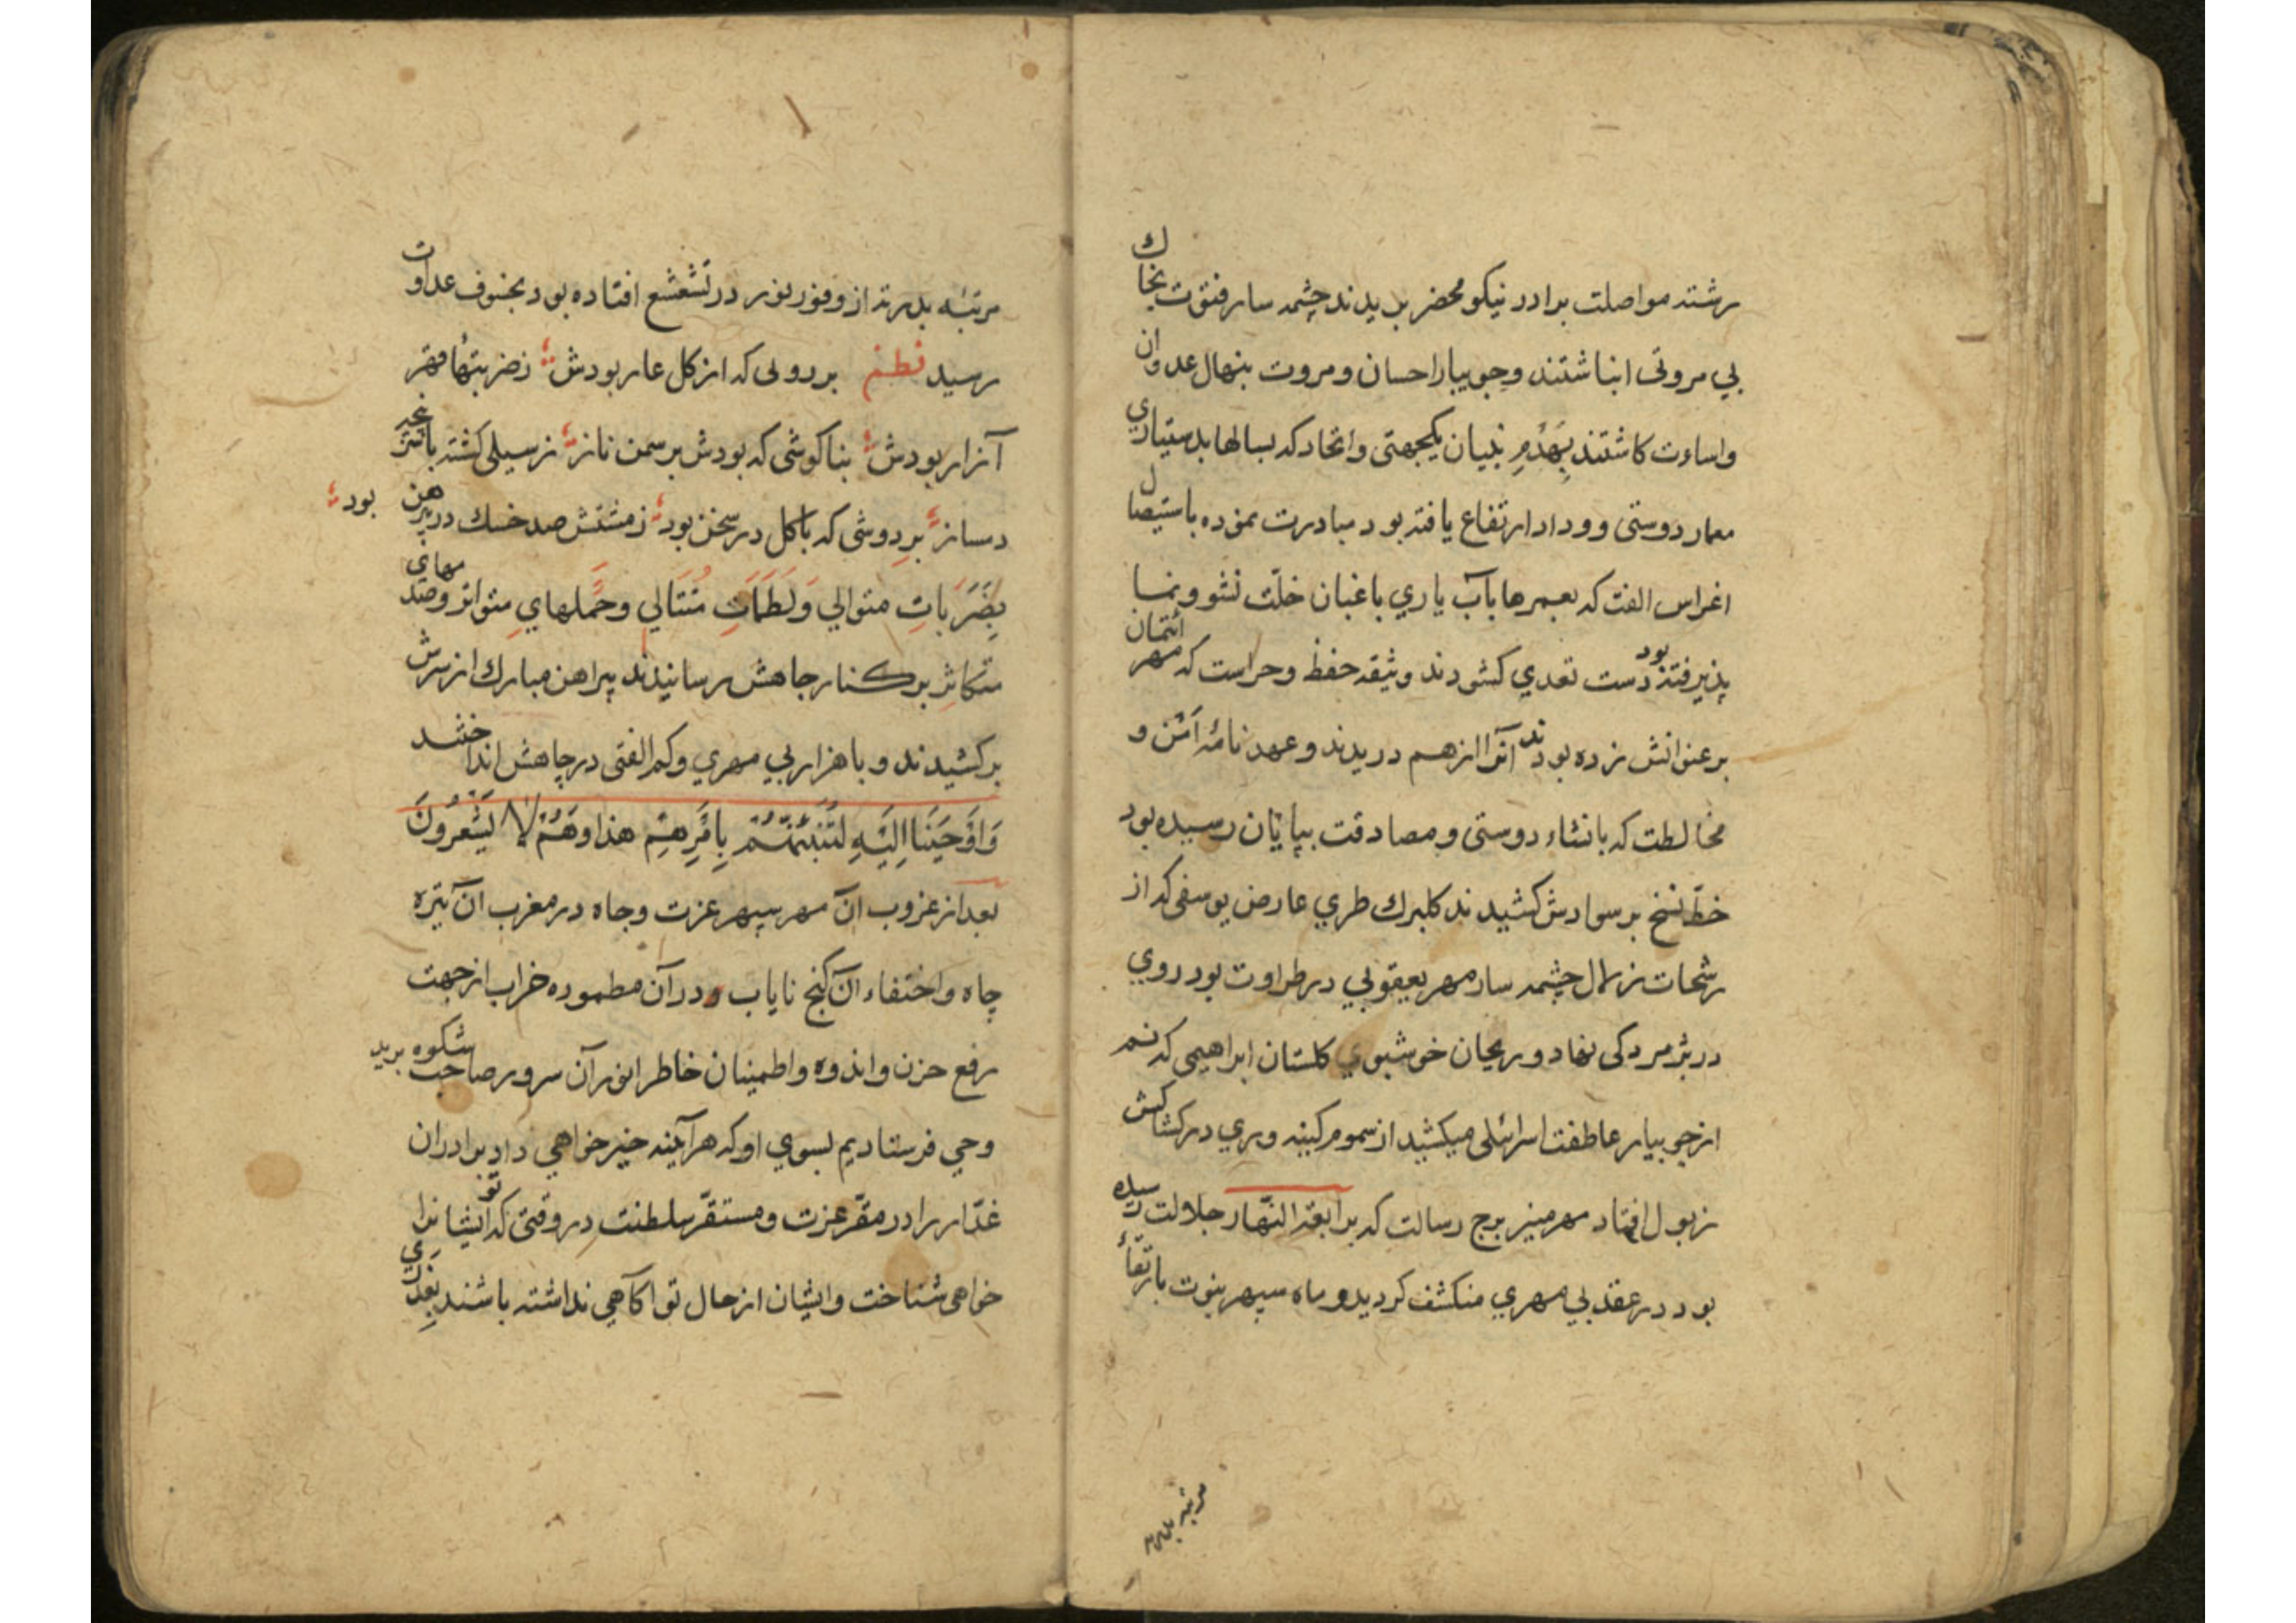 رشته مواصلت برادر نیکو محضر بریدند چشمه سار فتوّت بخاك
بي مروتی انباشتند و جویبار احسان و مروت بنهال عدوان
و اساءت کاشتند بِهَدْمِ بنیان یکجهتی و اتحاد که بسالها بدستیاري
معمار دوستی و وداد ارتفاع یافته بود مبادرت نموده باستیصال
اغراس الفت که بعمرها بآب یاري باغبان خلّت نشو و نما
پذیرفته بود دست تعدي کشودند وثیقه حفظ و حراست که مهر ائتمان
بر عنوانش زده بودند آنرا از هم دریدند و عهد نامهٔ اَمْن و
مخالطت که بانشاء دوستی و مصادقت بپایان رسیده بود
خطّ نسخ بر سوادش کشیدند کلبرك طري عارض یوسفی که از
رشحات زلال چشمه سار مهر یعقوبي در طراوت بود روي
در پژمردکی نهاد و ریحان خوشبوي کلستان ابراهیمی که نم
از جویبار عاطفت اسرائلی میکشید از سموم کینه وري در کشاکش
زبول افتاد مهر منیر برج رسالت که برابعة النّهار جلالت رسیده
بود در عقد بي مهري منکشف کردید و ماه سپهر نبوّت بارتقاٴ
مرتبه بدر
مرتبهٔ بدریّت از وفور نور در تشعشع افتاده بود بخسوف عداوت
رسید نظم بر دولی که از کل عار بودش زضربتها مقر
آزار بودش بنا کوشی که بودش بر سمن ناز ز سیلی کشته با
دمساز بر دوشی که با کل در سخن بود ز مشتش صد خسك در پیرهن بود
بِضَرَباتِ متوالي وَلَطَمَاتِ مُتَتالي و حَملهاي متواتر و صدمهای
متکاثر بر کنار چاهش رسانیدند پیراهن مبارك از سرش
برکشیدند و با هزار بي مهري و کم الفتی در چاهش انداختند
وَاَوْحَيْنَا اِلَيْهِ لَتُنَبِّئَنَّهُمْ بِاَمْرِهِمْ هذا وَهُمْ لا يَشْعُرُونَ
بعد از غروب آن مهر سپهر عزت و جاه در مغرب آن تیره
چاه و اختفاء آن کنج نایاب در آن مطموره خراب از جهت
رفع حزن و اندوه و اطمینان خاطر انور آن سرور صاحب شکوه برید
وحي فرستادیم بسوي او که هرآینه خبر خواهي داد برادران
غدّار را در مقرّ عزت و مستقرّ سلطنت در وقتی که تو ایشانرا
خواهی شناخت و ایشان از حال تو اکآهي نداشته باشند